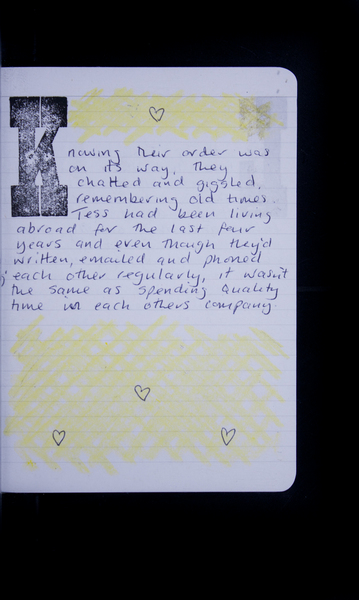 Knowing their order was
on its way, they
chatted and giggled,
remembering old times.
Tess had been living
abroad for the last four
years and even though they'd
written, emailed and phoned
each other regularly, it wasn't
the same as spending quality
time in each others company.